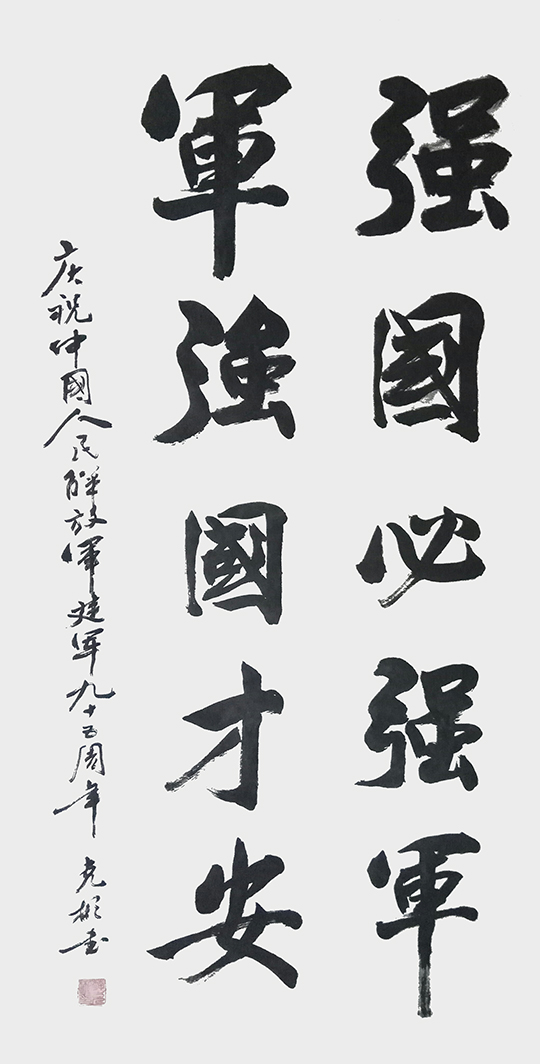 强國必强軍
軍强國才安
庆祝中國人民解放軍建軍九十五周年 克彬书